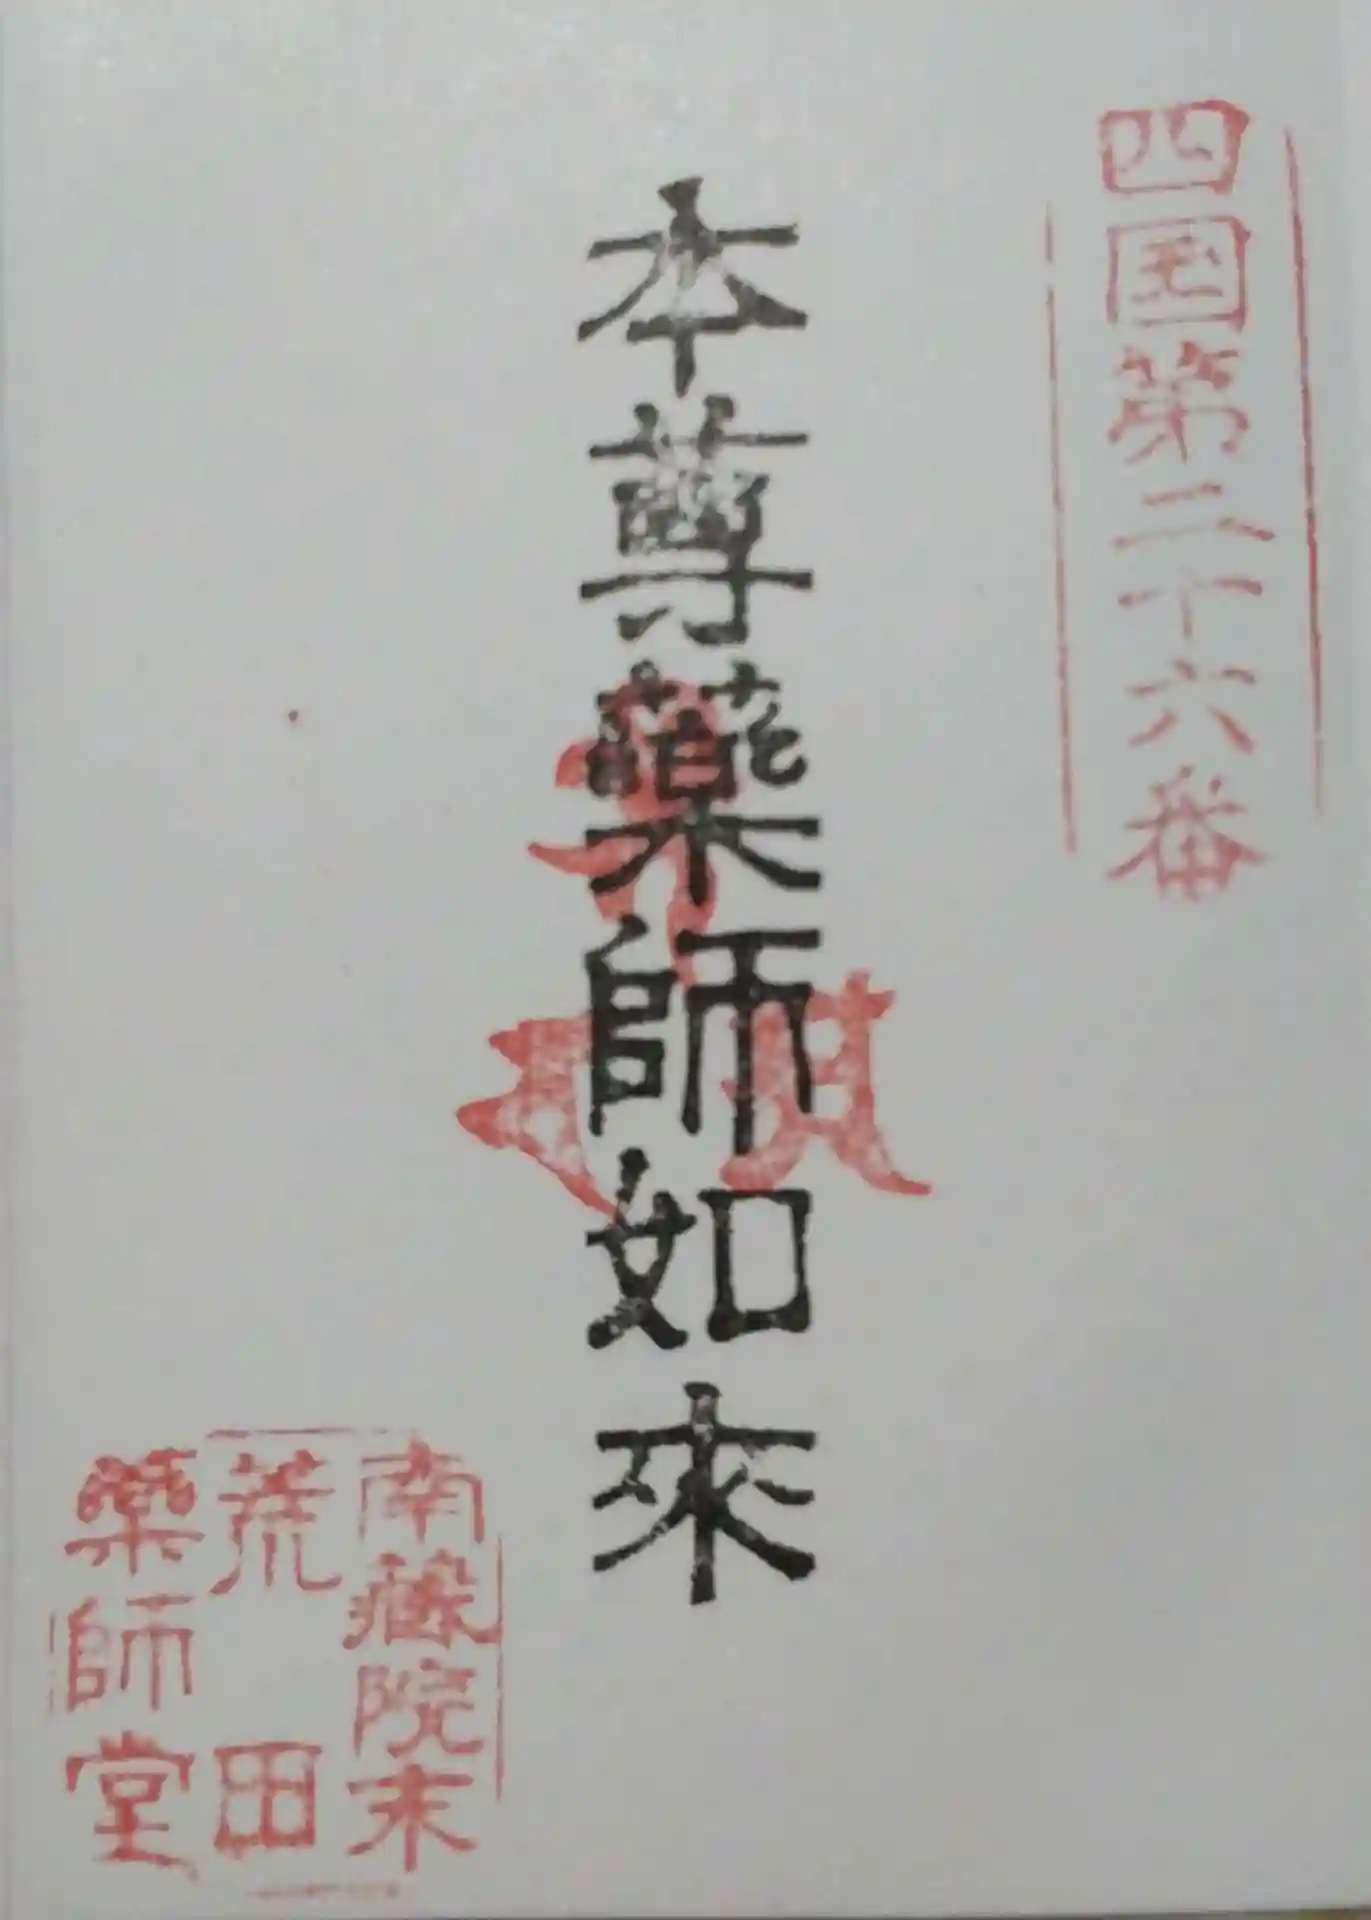 四国第二十六番
本尊薬師如來
南藏院末
荒田
薬師堂